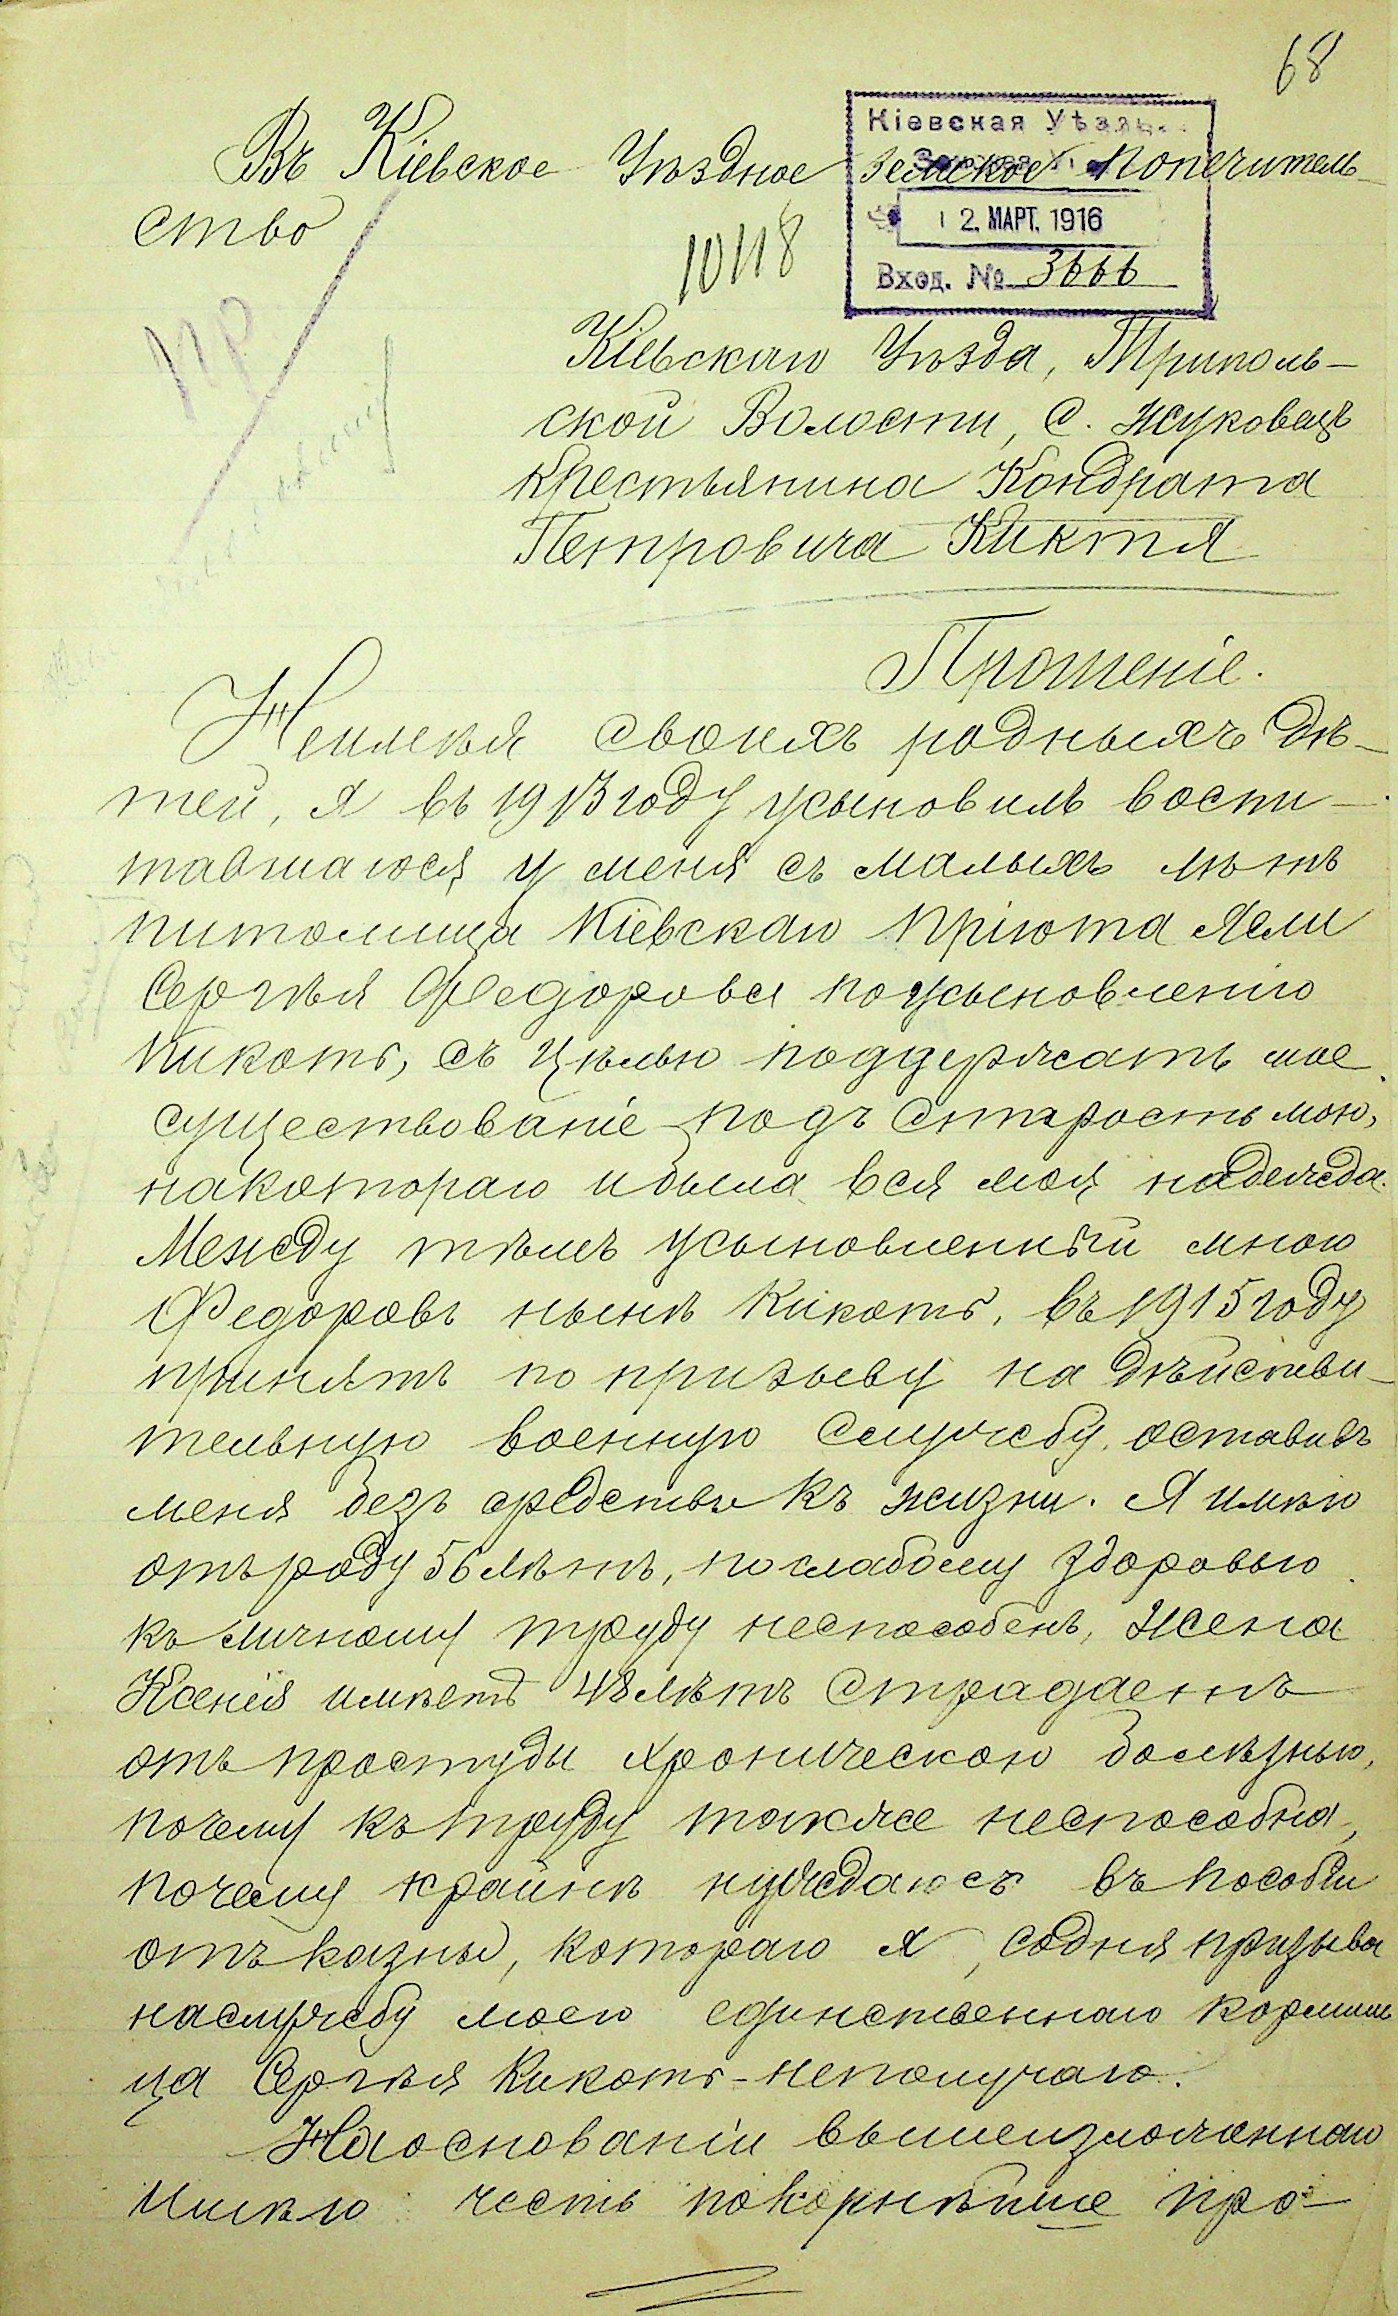 68
Кіевская Уѣздн
Въ Кіевское Уѣздное Земское Попечитель-
ство
12. МАРТ. 1916
10118
Вход. № 3666
пр
Кіевскаго Уѣзда, Триполь-
ской Волости, С. Жуковецъ
крестьянина Кондрата
Петровича Кикотя
Прошеніе.
Неимѣя своихъ родныхъ дѣ-
тей, я въ 1913 году усыновилъ воспи-
тавшагося у меня съ малыхъ лѣтъ
питомица Кіевскаго пріюта Ясли
Сергѣя Федорова поусыновленію
Кикоть, съ цѣлью поддержать мое
существованіе подъ старость мою,
накотораго и была вся моя надежда.
Между тѣмъ усыновленный мною
Федоровъ нынѣ Кикоть, въ 1915 году
принятъ по призыву на дѣйстви-
тельную военную службу, оставивъ
меня безъ средствъ къ жизни. Я имѣю
отъ роду 56 лѣтъ, по слабому здоровью
къ личному труду неспособенъ, жена
Ксенія имѣетъ 48 лѣтъ страдаетъ
отъ простуды хроническою болѣзнью,
почему къ труду также неспособна,
почему крайнѣ нуждаюсъ въ пособіи
отъ казны, котораго я, содня призыва
наслужбу моего единственнаго кормиль
ца Сергѣя Кикоть - неполучаю.
Наоснованіи вышеизложеннаго
Имѣю честь покорнѣйше про-